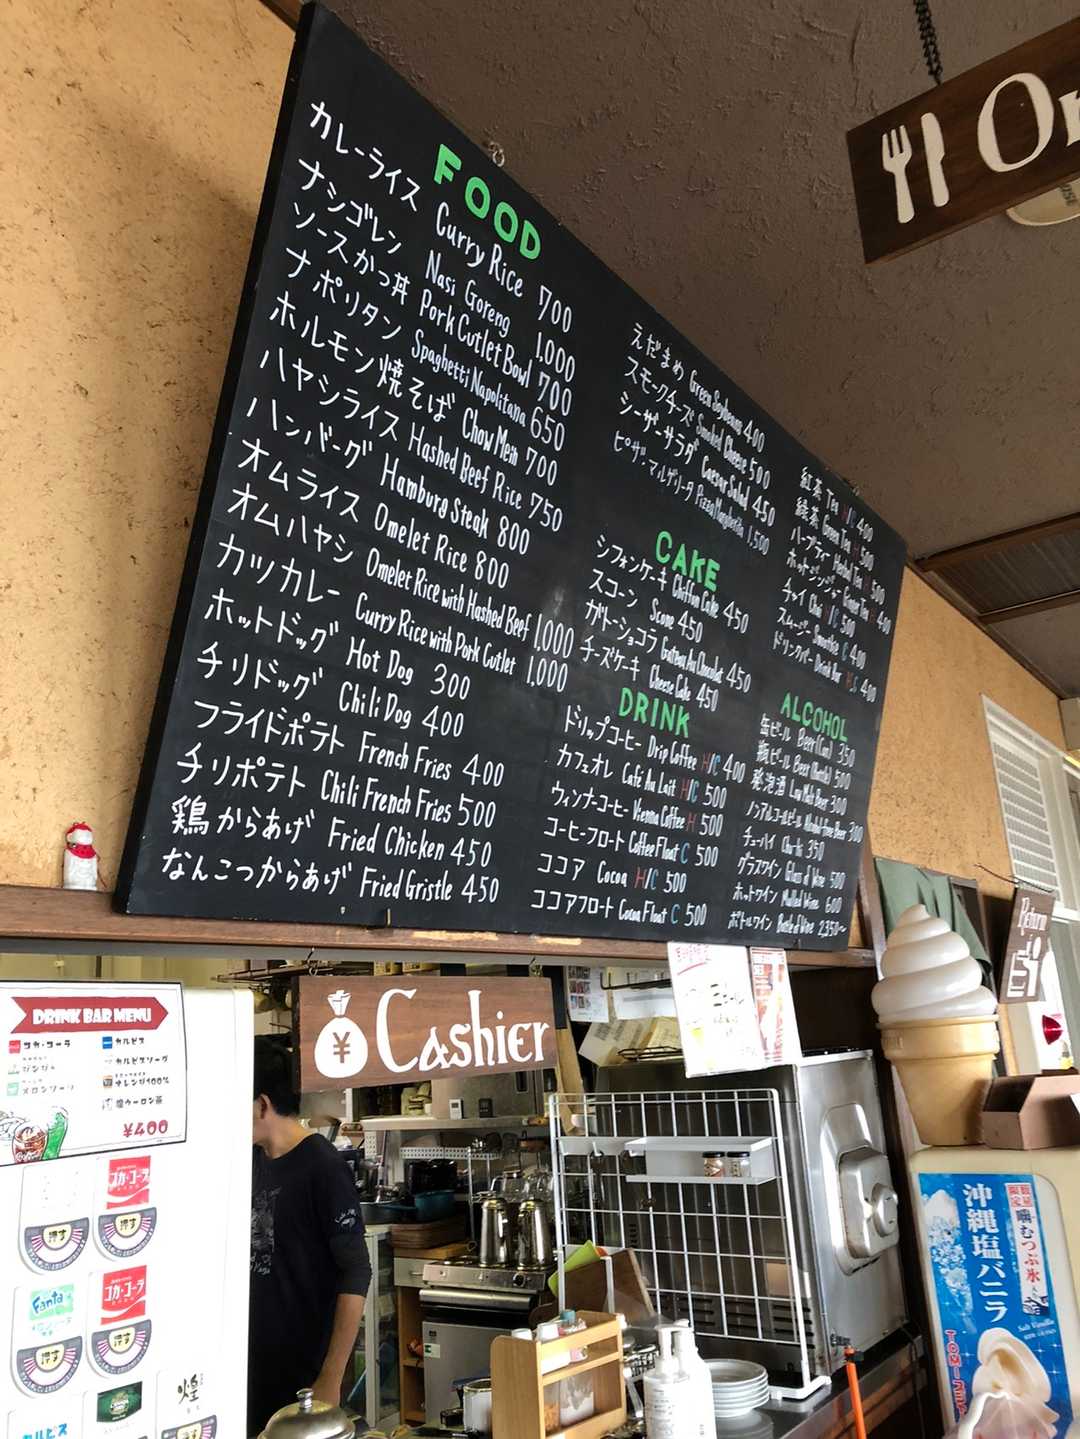 FOOD
カレーライス Curry Rice 700
ナシゴレン Nasi Goreng 1,000
ソースかつ丼 Pork Cutlet Bowl 700
ナポリタン Spaghetti Napolitana 650
ホルモン焼そば Chow Mein 700
ハヤシライス Hashed Beef Rice 750
ハンバーグ Hamburg Steak 800
オムライス Omelet Rice 800
オムハヤシ Omelet Rice with Hashed Beef 1,000
カツカレー Curry Rice with Pork Cutlet 1,000
ホットドッグ Hot Dog 300
チリドッグ Chili Dog 400
フライドポテト French Fries 400
チリポテト Chili French Fries 500
鶏からあげ Fried Chicken 450
なんこつからあげ Fried Gristle 450
えだまめ Green Soybeans 400
スモークチーズ Smoked Cheese 500
シーザーサラダ Caesar Salad 450
ピザ・マルゲリータ Pizza Margherita 1,500
CAKE
シフォンケーキ Chiffon Cake 450
スコーン Scone 450
ガトーショコラ Gateau Au Chocolat 450
チーズケーキ Cheese Cake 450
DRINK
ドリップコーヒー Drip Coffee H/C 400
カフェオレ Café Au Lait H/C 500
ウィンナーコーヒー Vienna Coffee H 500
コーヒーフロート Coffee Float C 500
ココア Cocoa H/C 500
ココアフロート Cocoa Float C 500
紅茶 Tea H/C 400
緑茶 Green Tea H 500
ハーブティー Herbal Tea H 500
ホットジンジャー Ginger Tea H 400
チャイ Chai H/C 500
スムージー Smoothie C 400
ドリンクバー Drink bar H.S 400
ALCOHOL
缶ビール Beer (Can) 350
瓶ビール Beer (Bottle) 500
発泡酒 Low Malt Beer 300
ノンアルコールビール Alcohol-free Beer 300
チューハイ Chu-hi 350
グラスワイン Glass of Wine 500
ホットワイン Mulled Wine 600
ボトルワイン Bottle of Wine 2,350〜
Or
Return
Cashier
¥
DRINK BAR MENU
コカ・コーラ
カルピス
カルピスソーダ
メロンソーダ
オレンジ100%
煌ウーロン茶
¥400
コカ・コーラ
押す
押す
Fanta
コカ・コーラ
押す
押す
煌
カルピス
数量限定
噛むつぶ氷
沖縄塩バニラ
Salt Vanilla